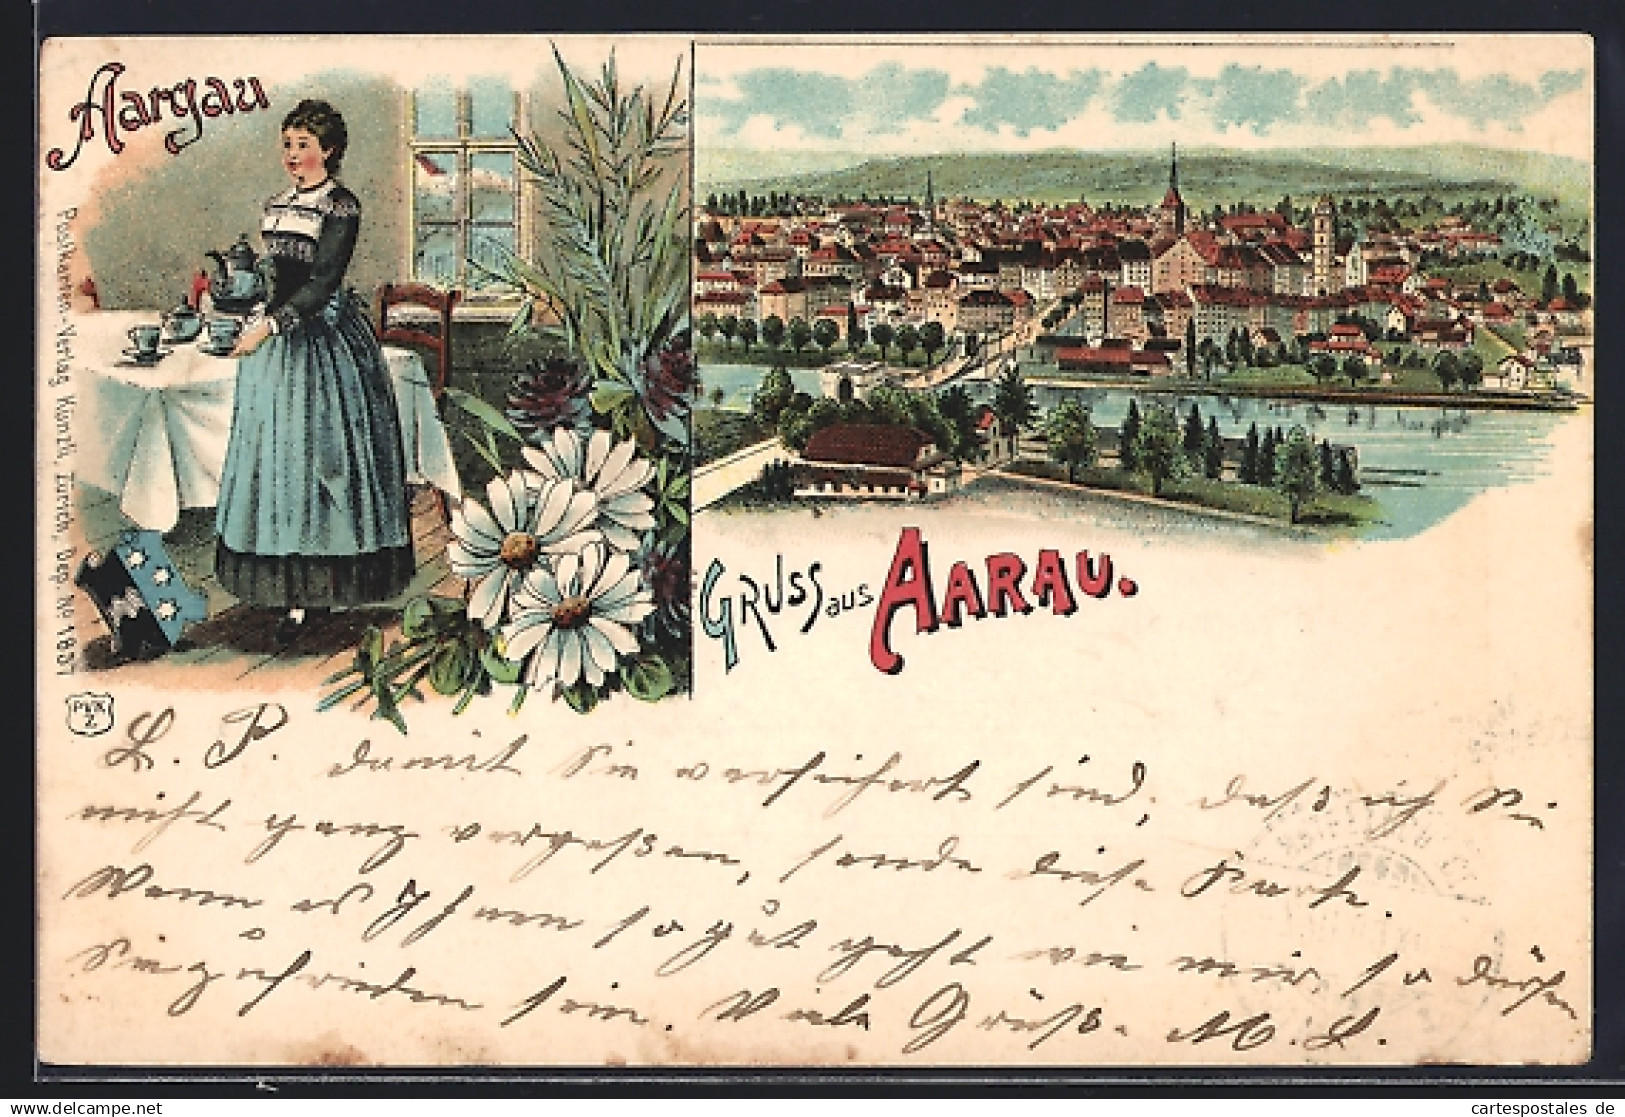 Aargau
Postkarten-Verlag Künzli, Zürich, Dep. No 1857
PVKZ
GRUSS aus AARAU.
L. P. damit Sie versichert sind, daß ich Sie
nicht ganz vergeßen, sende diese Karte.
Wenn es Ihnen so gut geht wie mir so dürfen
Sie zufrieden sein. Viele Grüße. M. L.
cartespostales de